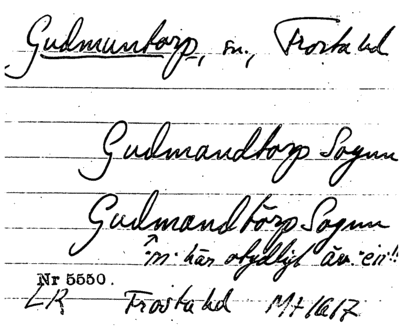 Gudmuntorp, sn., Frosta hd
Gudmandtorp Sogun
Gudmandtörp Sogun
"n" här otydligt äv. "en"!
Nr 5550.
LR Frosta hd Mt 1617